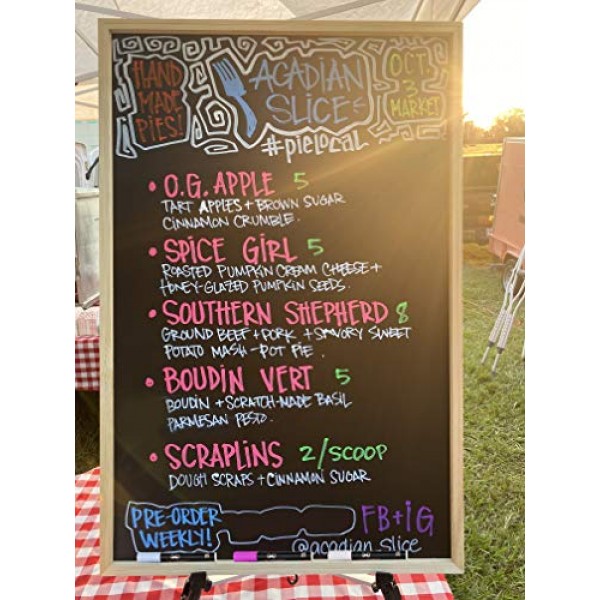 HAND MADE PIES!
ACADIAN SLICE
OCT. 3 MARKET
#PIELOCAL
• O.G. APPLE 5
TART APPLES + BROWN SUGAR
CINNAMON CRUMBLE.
• SPICE GIRL 5
ROASTED PUMPKIN CREAM CHEESE +
HONEY-GLAZED PUMPKIN SEEDS.
• SOUTHERN SHEPHERD 8
GROUND BEEF + PORK + SAVORY SWEET
POTATO MASH - POT PIE.
• BOUDIN VERT 5
BOUDIN + SCRATCH-MADE BASIL
PARMESAN PESTO.
• SCRAPLINS 2/SCOOP
DOUGH SCRAPS + CINNAMON SUGAR
PRE-ORDER
WEEKLY!
FB+IG
@acadian_slice